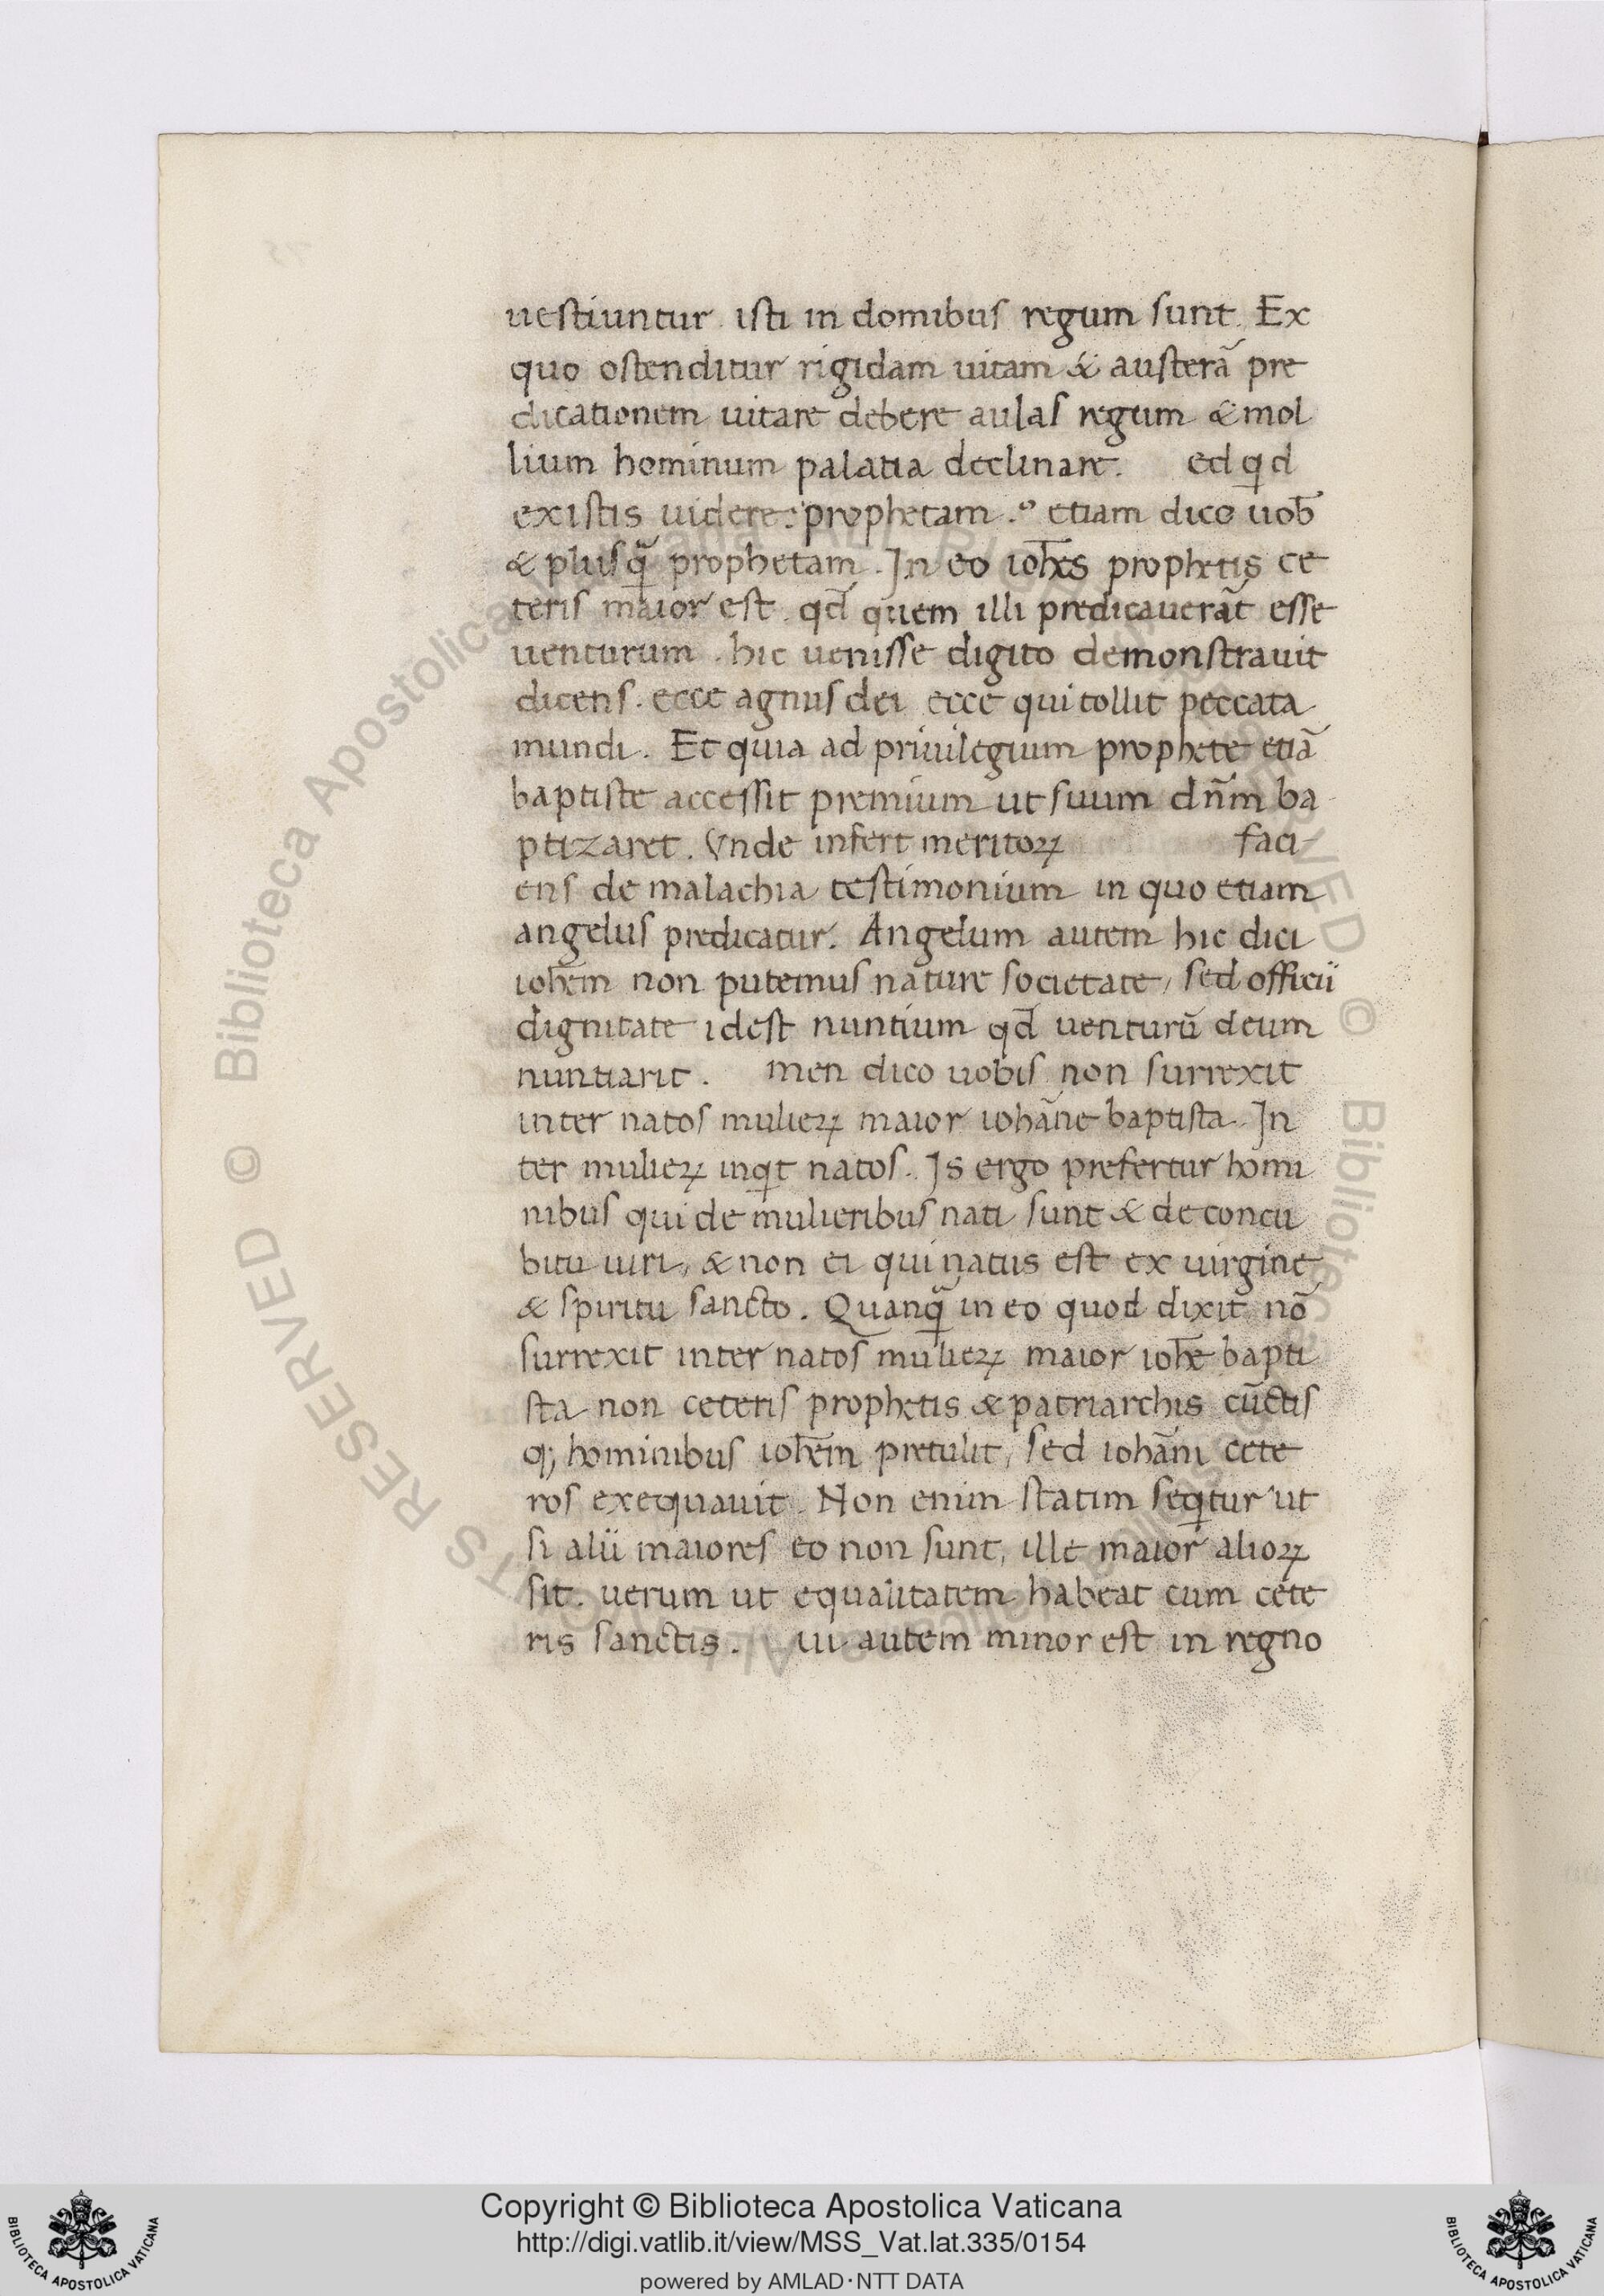 uestiuntur. isti in domibus regum sunt. Ex
quo ostenditur rigidam uitam & austerā pre
dicationem uitare debere aulas regum & mol
lium hominum palatia declinare. ed qd
existis uidere? prophetam? etiam dico uob̄
& plusq̄ prophetam. In eo ioh̄es prophetis ce
teris maior est. qd̄ quem illi predicauerāt esse
uenturum. hic uenisse digito demonstrauit
dicens. ecce agnus dei ecce qui tollit peccata
mundi. Et quia ad priuilegium prophete etiā
baptiste accessit premium ut suum dn̄m ba
ptizaret. Vnde infert meritoꝝ faci-
ens de malachia testimonium in quo etiam
angelus predicatur. Angelum autem hic dici
ioh̄em non putemus nature societate, sed officii
dignitate idest nuntium qd̄ uenturū deum
nuntiarit. men dico uobis non surrexit
inter natos mulieꝝ maior iohāne baptista. In
ter mulieꝝ inqt natos. Is ergo prefertur homi
nibus qui de mulieribus nati sunt & de concu
bitu uiri, & non ei qui natus est ex uirgine
& spiritu sancto. Quanq̄ in eo quod dixit nō
surrexit inter natos mulieꝝ maior ioh̄e bapti
sta non ceteris prophetis & patriarchis cūctis
q; hominibus ioh̄em pretulit, sed iohāni cete
ros exequauit. Non enim statim seqtur ut
si alii maiores eo non sunt, ille maior alioꝝ
sit. uerum ut equalitatem habeat cum cete
ris sanctis. ui autem minor est in regno
Copyright © Biblioteca Apostolica Vaticana
http://digi.vatlib.it/view/MSS_Vat.lat.335/0154
powered by AMLAD·NTT DATA
BIBLIOTECA APOSTOLICA VATICANA
BIBLIOTECA APOSTOLICA VATICANA